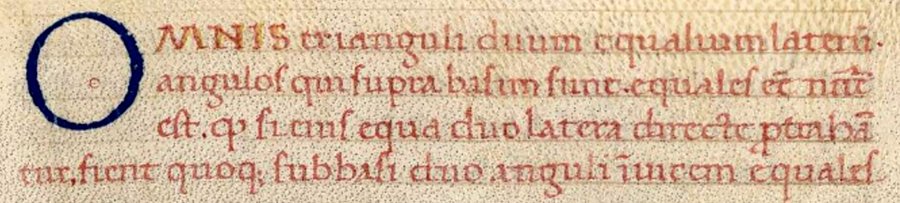 OMNIS trianguli duum equalium laterū.
anguloſ qui ſupra baſim ſunt. equaleſ eē nēē
eſt. ꝙ ſi eiuſ equa duo latera directe ꝓtrahā
tur, fient quoq; ſubbaſi duo anguli īuicem equaleſ